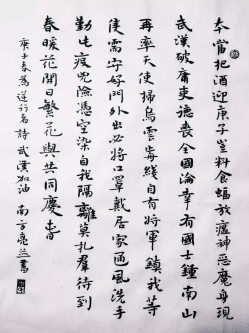 本當把酒迎庚子豈料食蝠放瘟神現
武漢破庸吏德喪全國淪幸有國士鍾南山
再率天使掃烏雲自有將軍鎮我等
隻需守好門外出必將口罩戴居家通風洗手
勤疫兇險憑空染自我隔離莫扎羣待到
春暖花開日繁花與共同慶春
庚子春為逆行者詩武漢加油 南方亮書